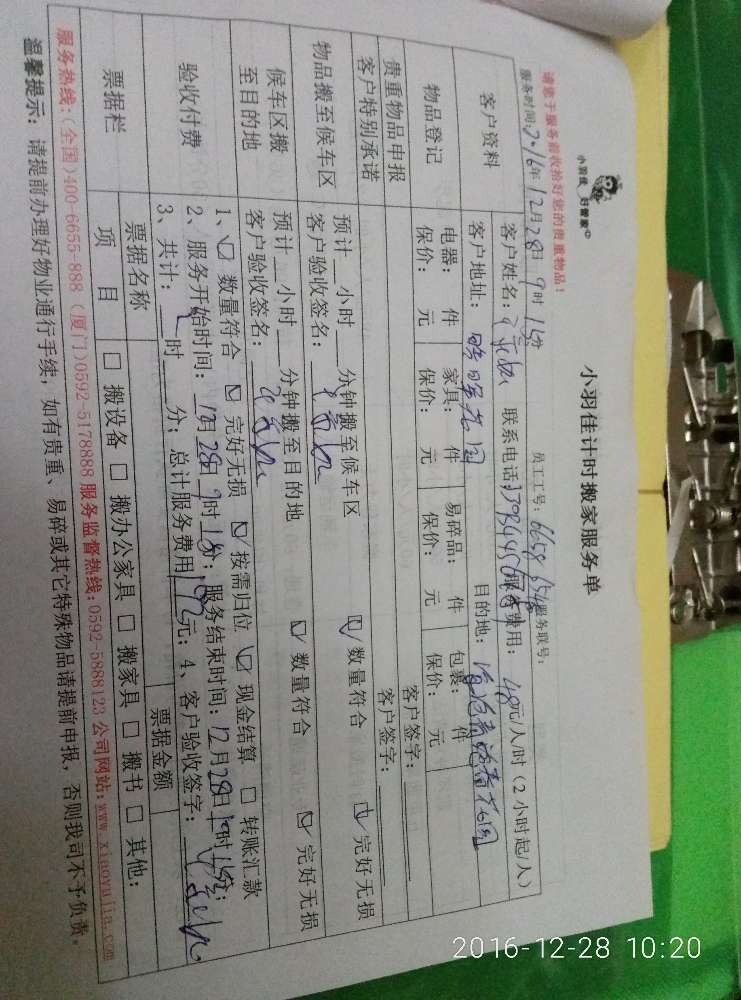 小羽佳 妇管家
小羽佳计时搬家服务单
请您于服务前收拾好您的贵重物品！
员工工号：6658 654 服务联号：
服务时间：2016年12月28日 9时15分
客户资料
客户姓名： 联系电话： 服务费用：48元/人/时（2小时起/人）
客户地址： 目的地：
物品登记
电器： 件 家具： 件 易碎品： 件 包裹： 件
保价： 元 保价： 元 保价： 元 保价： 元
贵重物品申报 客户签字：
客户特别承诺 客户签字：
物品搬至候车区
预计 小时 分钟搬至候车区 数量符合 完好无损
客户验收签名：
候车区搬至目的地
预计 小时 分钟搬至目的地 数量符合 完好无损
客户验收签名：
验收付费
1、 数量符合 完好无损 按需归位 现金结算 转账汇款
2、服务开始时间：12月28日9时15分；服务结束时间：12月28日 时15分；
3、共计： 时 分；总计服务费用 元；4、客户验收签字：
票据栏
票据名称 票据金额
项 目 搬设备 搬办公家具 搬家具 搬书 其他：
服务热线：(全国)400-6655-888 (厦门)0592-5178888 服务监督热线：0592-5888123 公司网站：www.xiaoyujia.com
温馨提示：请提前办理好物业通行手续，如有贵重、易碎或其它特殊物品请提前申报，否则我司不予负责。
2016-12-28 10:20